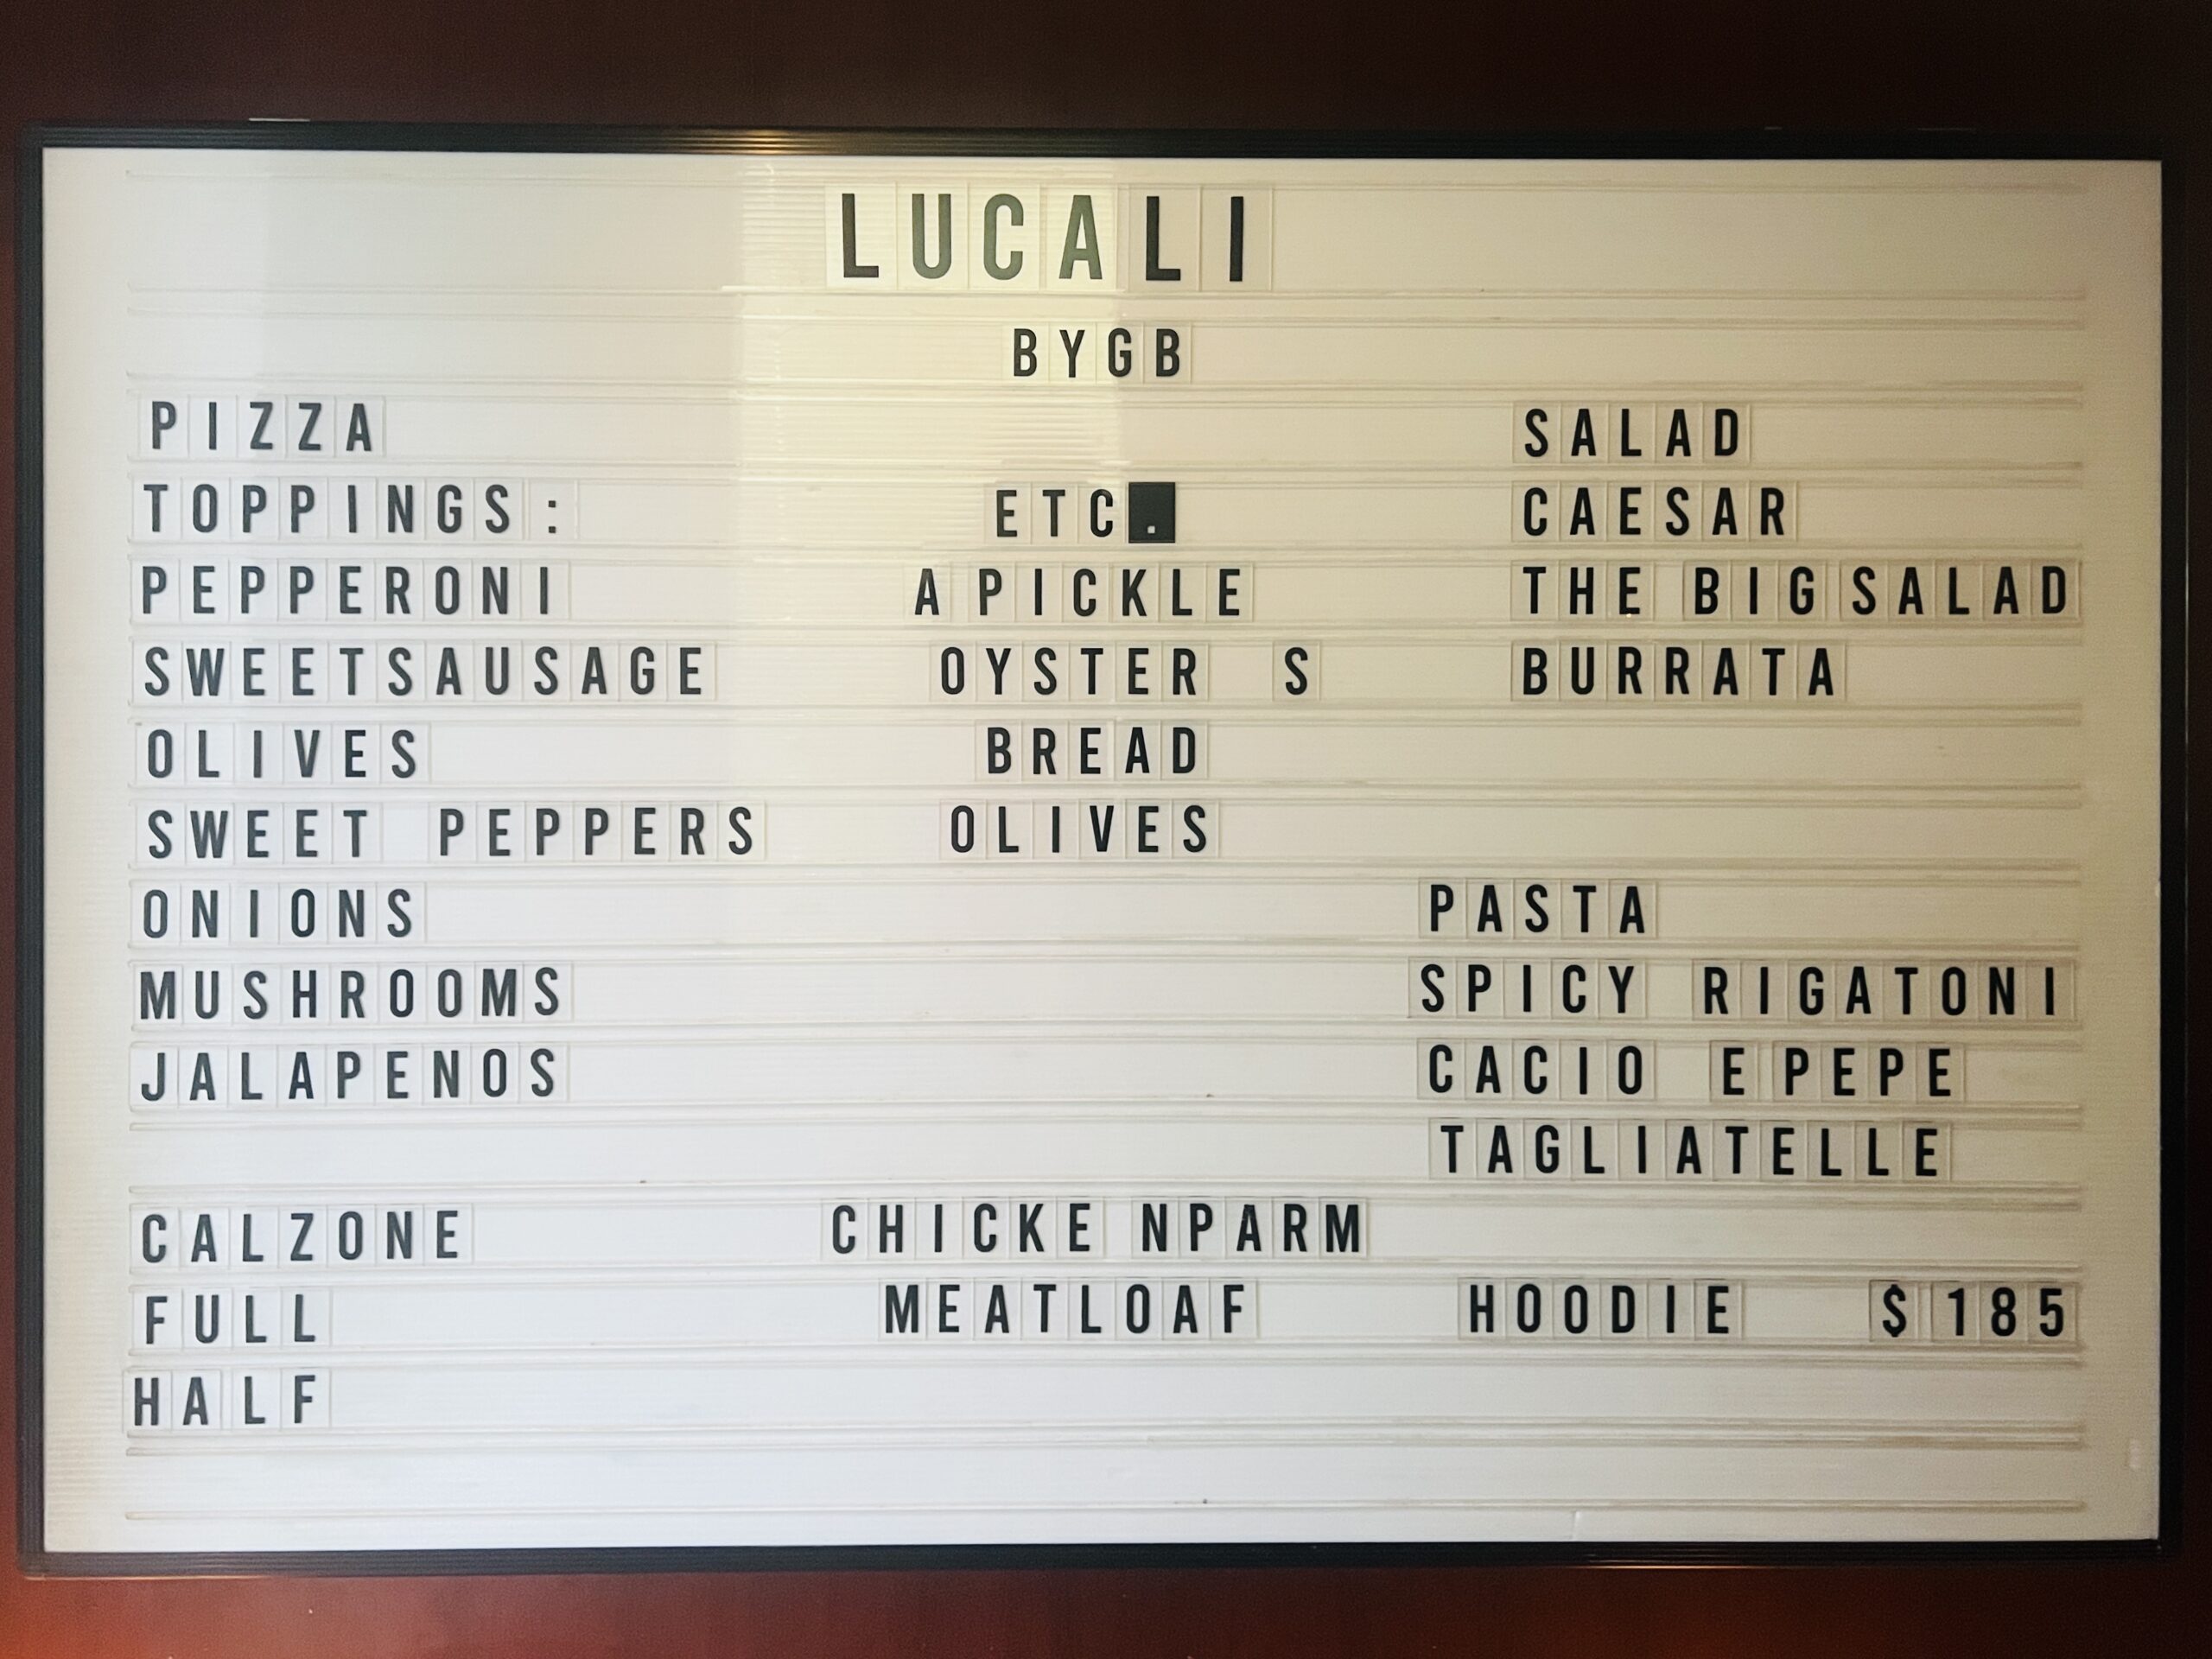 LUCALI
BYGB
PIZZA
TOPPINGS:
PEPPERONI
SWEETSAUSAGE
OLIVES
SWEET PEPPERS
ONIONS
MUSHROOMS
JALAPENOS
CALZONE
FULL
HALF
ETC.
A PICKLE
OYSTER S
BREAD
OLIVES
CHICKE NPARM
MEATLOAF
SALAD
CAESAR
THE BIG SALAD
BURRATA
PASTA
SPICY RIGATONI
CACIO E PEPE
TAGLIATELLE
HOODIE $185